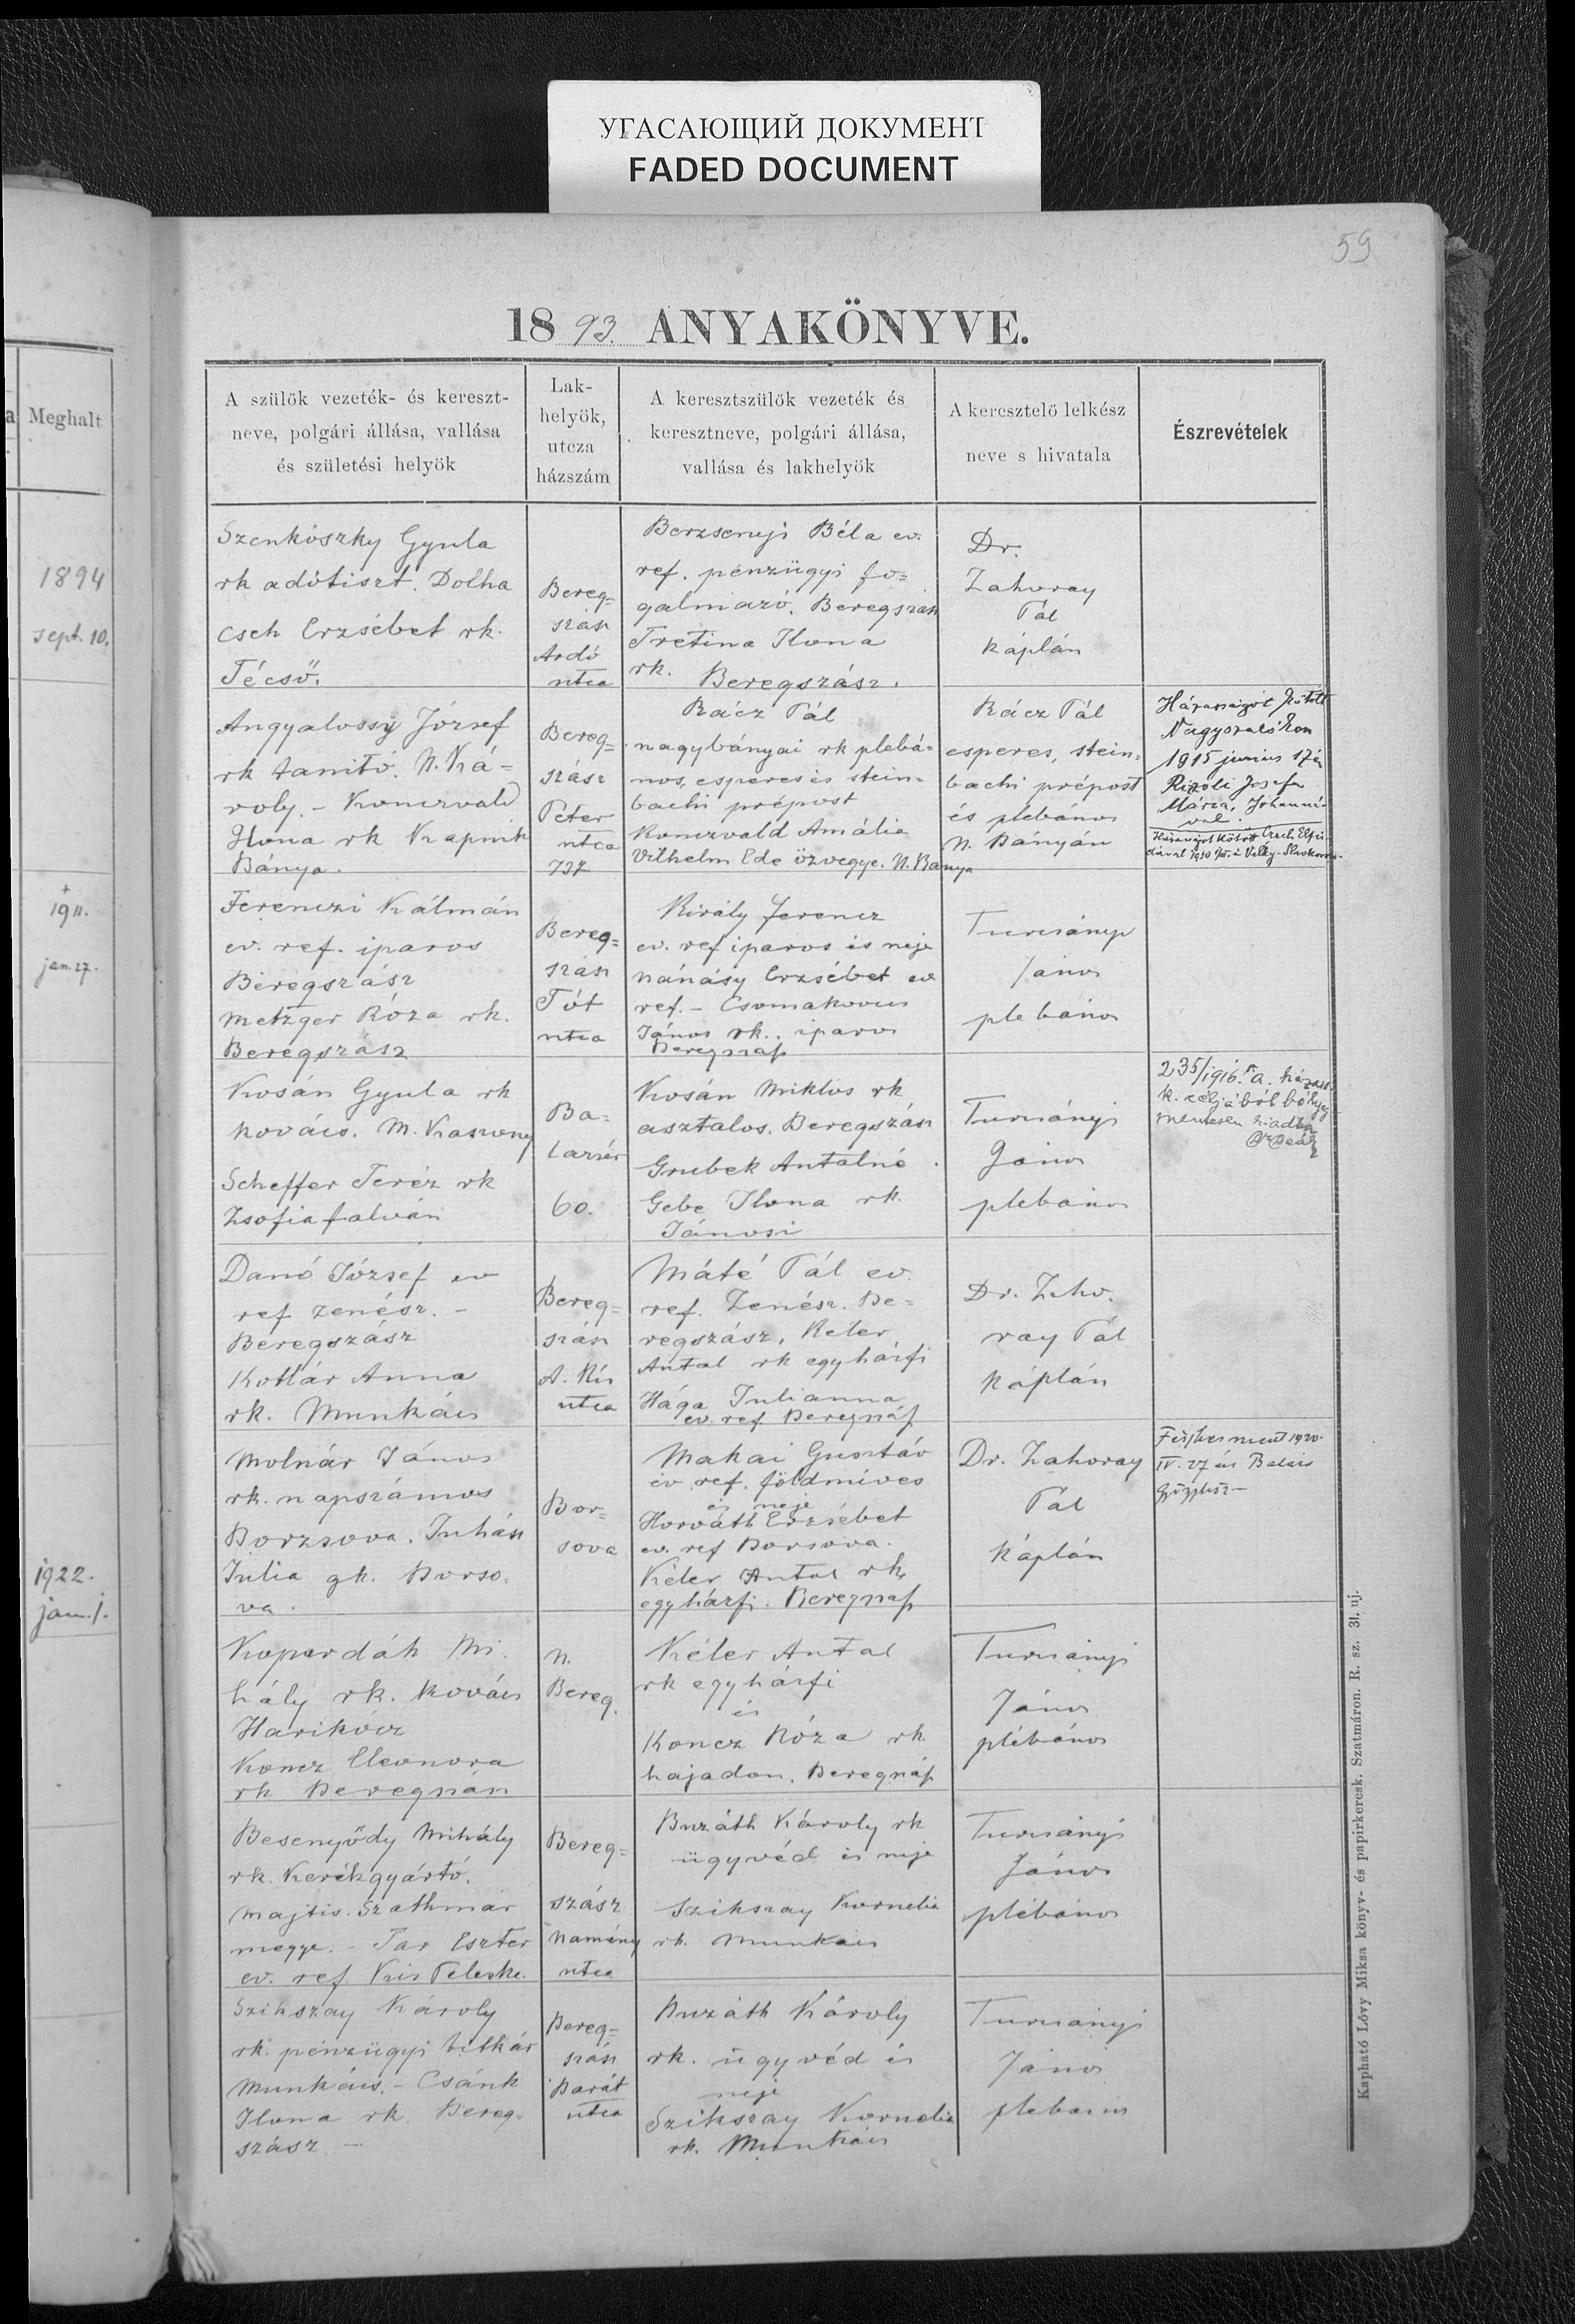 УГАСАЮЩИЙ ДОКУМЕНТ
FADED DOCUMENT
59
1893. ANYAKÖNYVE.
a Meghalt
1894
sept. 10.
+
1911.
jan. 27.
1922.
jan. 1.
A szülök vezeték- és kereszt-
neve, polgári állása, vallása
és születési helyök
Lak-
helyök,
utcza
házszám
A keresztszülök vezeték és
keresztneve, polgári állása,
vallása és lakhelyök
A keresztelö lelkész
neve s hivatala
Észrevételek
Szenkószky Gyula
rk adótiszt. Dolha
Cseh Erzsébet rk.
Técső.
Bereg=
szász
Ardó
utca
Berzsenyi Béla ev.
ref. pénzügyi fo=
galmazó. Beregszász
Tretina Ilona
rk. Beregszász.
Dr.
Zahoray
Pál
káplán
Angyalossy József
rk tanító. N. Ká=
roly. - Konczvald
Ilona rk Kapnik
Bánya.
Bereg=
szász
Péter
utca
737
Rácz Pál
nagybányai rk plebá=
nos, esperes és stein=
bachi prépost
Konczvald Amália
Vilhelm Ede özvegye. N. Banya
Rácz Pál
esperes, stein=
bachi prépost
és plebános
N. Bányán
Házasságot kötött
Nagyszalókon
1915 junius 17én
Josefa
Mária, Johanná-
val.
Házasságot kötött Cseh Elfri-
dával 1930
Ferenczi Kálmán
ev. ref. iparos
Beregszász
Metzger Róza rk.
Beregszász
Bereg=
szász
Tót
utca
Király Ferencz
ev. ref iparos és neje
Nánásy Erzsébet ev
ref. - Csomakovics
János rk. iparos
Beregszász
Turcsányi
János
plebános
Kosán Gyula rk
kovács. M. Kaszony
Scheffer Teréz rk
Zsofiafalván
Ba=
lazsér
60.
Kosán Miklós rk
asztalos. Beregszász
Grubek Antalné
Gebe Ilona rk.
Jánosi
Turcsányi
János
plebános
235/1916. a. házass.
k. céljából bélyeg
mentesen kiadva
Danó József ev
ref zenész. -
Beregszász
Kotlár Anna
rk. Munkács
Bereg=
szász
A. Kis
utca
Máté Pál ev.
ref. Zenész. Be=
regszász, Kéler
Antal rk egyházfi
Hága Julianna
ev. ref. Beregszász
Dr. Zaho.
ray Pál
káplán
Molnár János
rk. napszámos
Borzsova. Juhász
Julia gk. Borso.
va.
Bor=
sova
Makai Gusztáv
ev. ref. földmives
és neje
Horváth Erzsébet
ev. ref Borsova.
Kéler Antal rk
egyházfi. Beregszász
Dr. Zahoray
Pál
káplán
Férjhez ment 1920.
IV. 27 én Balázs
Kopordáh Mi.
hály rk. kovács
Harikócz
Koncz Eleonora
rk Beregszász
N.
Bereg.
Kéler Antal
rk egyházfi
és
Koncz Róza rk.
hajadon. Beregszász
Turcsányi
János
plébános
Besenyődy Mihály
rk. Kerékgyártó.
Majtis. Szathmár
megye. - Tar Eszter
ev. ref Kis Peleske.
Bereg=
szász
Namény
utca
Buzáth Károly rk
ügyvéd és neje
Szikszay Kornelia
rk. Munkács
Turcsányi
János
plébános
Szikszay Károly
rk. pénzügyi titkár
Munkács. - Csánk
Ilona rk. Bereg=
szász -
Bereg=
szász
Barát
utca
Buzáth Károly
rk. ügyvéd és
neje
Szikszay Kornelia
rk. Munkács
Turcsányi
János
plebános
Kapható Lövy Miksa könyv- és papirkeresk. Szatmáron. R. sz. 31. uj.